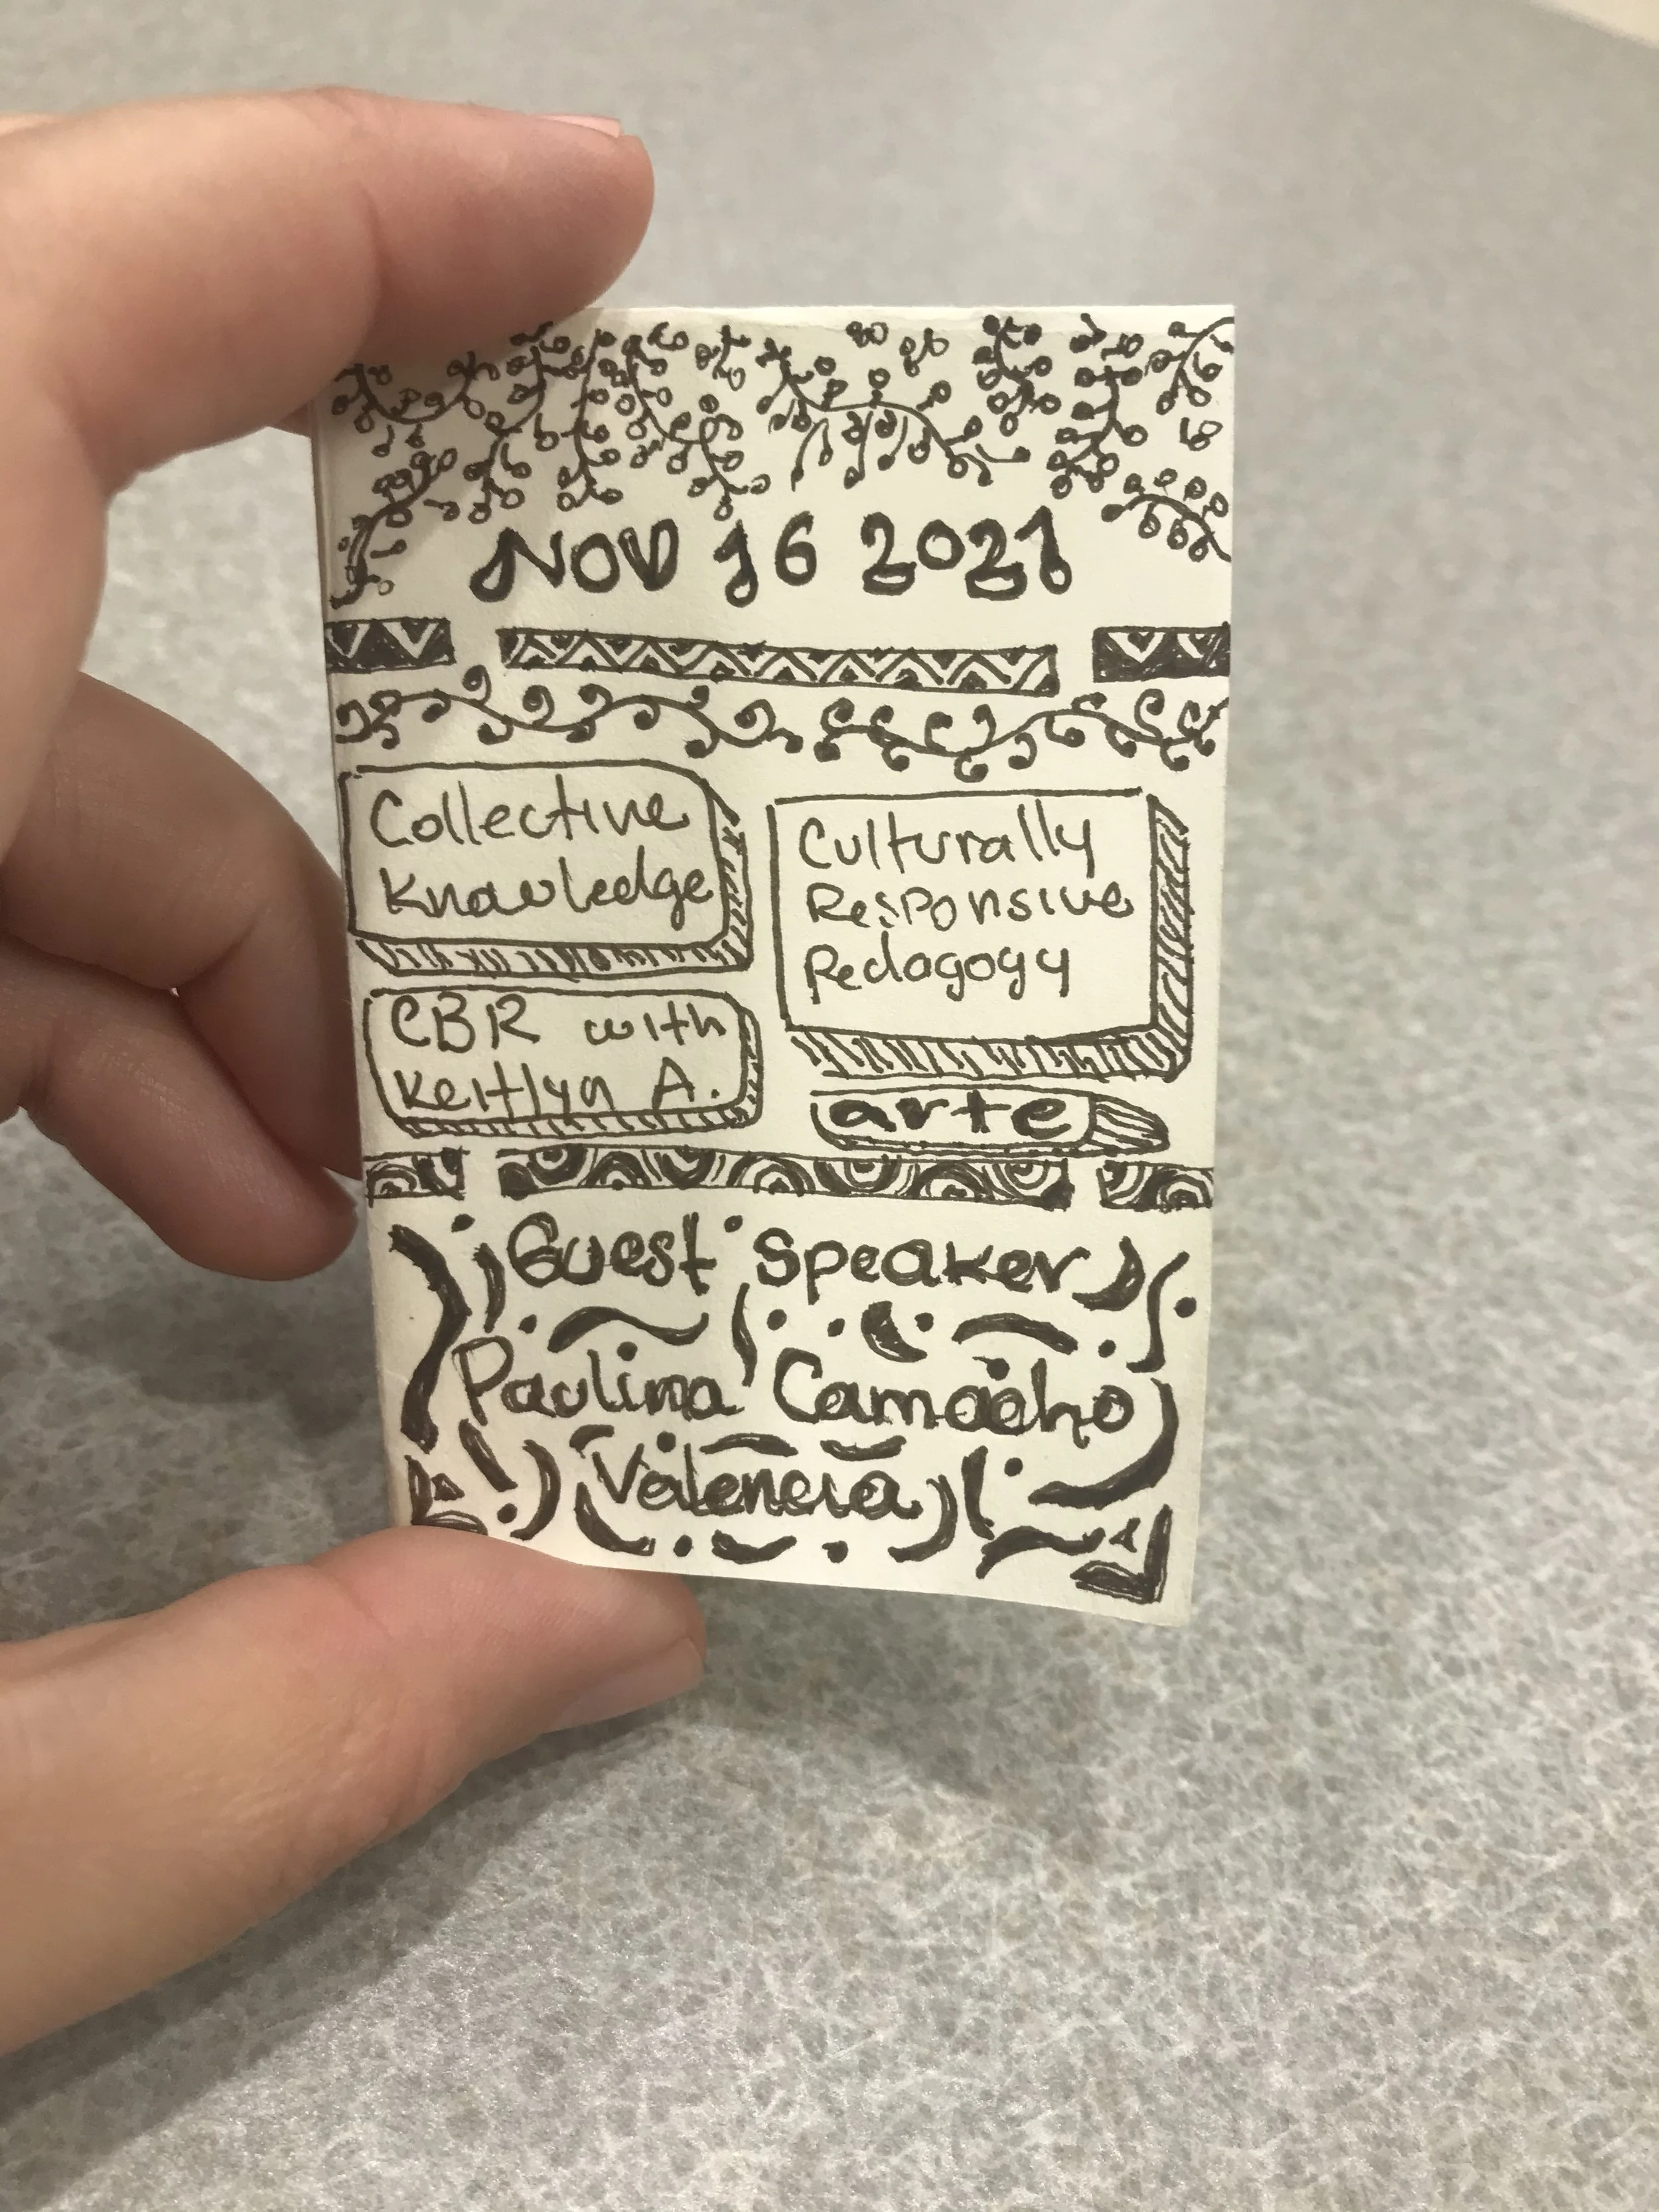 NOV 16 2021
Collective
Knowledge
CBR with
Keitlyn A.
Culturally
Responsive
Pedagogy
arte
Guest Speaker
Paulina Camacho
Valencia